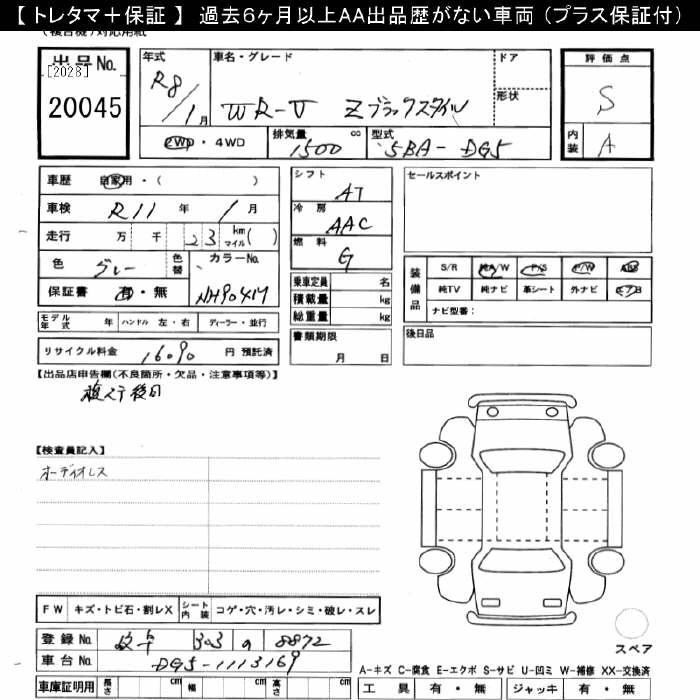 【 トレタマ＋保証 】 過去6ヶ月以上AA出品歴がない車両 （プラス保証付）
(複合機)対応用紙
出品No.
[2028]
20045
年式
R8/1月
車名・グレード
WR-V Zブラックスタイル
ドア
形状
2WD・4WD
排気量 1500 cc
型式 5BA-DG5
評価点
S
内装 A
車歴 自家用・( )
車検 R11年 1月
走行 万 千 23 km マイル( )
色 グレー 色替 カラーNo.
保証書 有・無 NH904M
モデル年式 年 ハンドル 左・右 ディーラー・並行
リサイクル料金 16090 円 預託済
シフト AT
冷房 AAC
燃料 G
乗車定員 名
積載量 kg
総重量 kg
書類期限
月 日
セールスポイント
装備品
S/R 純A/W P/S P/W ABS
純TV 純ナビ 革シート 外ナビ エアB
ナビ型番：
後日品
【出品店申告欄(不良箇所・欠品・注意事項等)】
後日
【検査員記入】
オーディオレス
FW キズ・トビ石・割レX シート内装 コゲ・穴・汚レ・シミ・破レ・スレ
登録No. 岐阜 303 の 8872
車台No. DG5-1113169
車庫証明用 長さ cm 幅 cm 高さ cm
スペア
A-キズ C-腐食 E-エクボ S-サビ U-凹ミ W-補修 XX-交換済
工具 有・無 ジャッキ 有・無